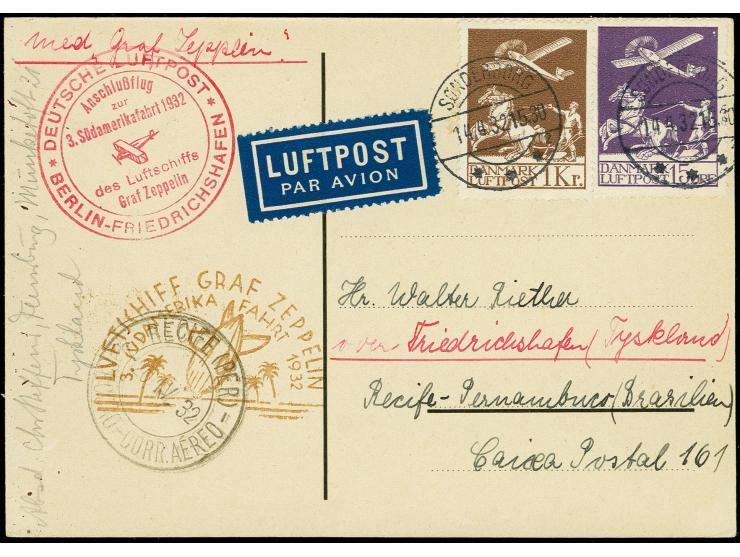 med „Graf Zepplin."
DEUTSCHE LUFTPOST
Anschlußflug
zur
3. Südamerikafahrt 1932
des Luftschiffs
Graf Zeppelin
BERLIN-FRIEDRICHSHAFEN
LUFTPOST
PAR AVION
SØNDERBORG
14.4.32.15.30
DANMARK
LUFTPOST 1 Kr.
SØNDERBORG
14.4.32.15.30
DANMARK
LUFTPOST 15 ØRE
LUFTSCHIFF GRAF ZEPPELIN
3. SÜDAMERIKA FAHRT 1932
RECIFE (PER)
IV 32
CORR. AÉREO
Hr. Walter Riether
over Friedrichshafen (Tyskland)
Recife-Pernambuco (Brazilien)
Caixa Postal 161
Tyskland